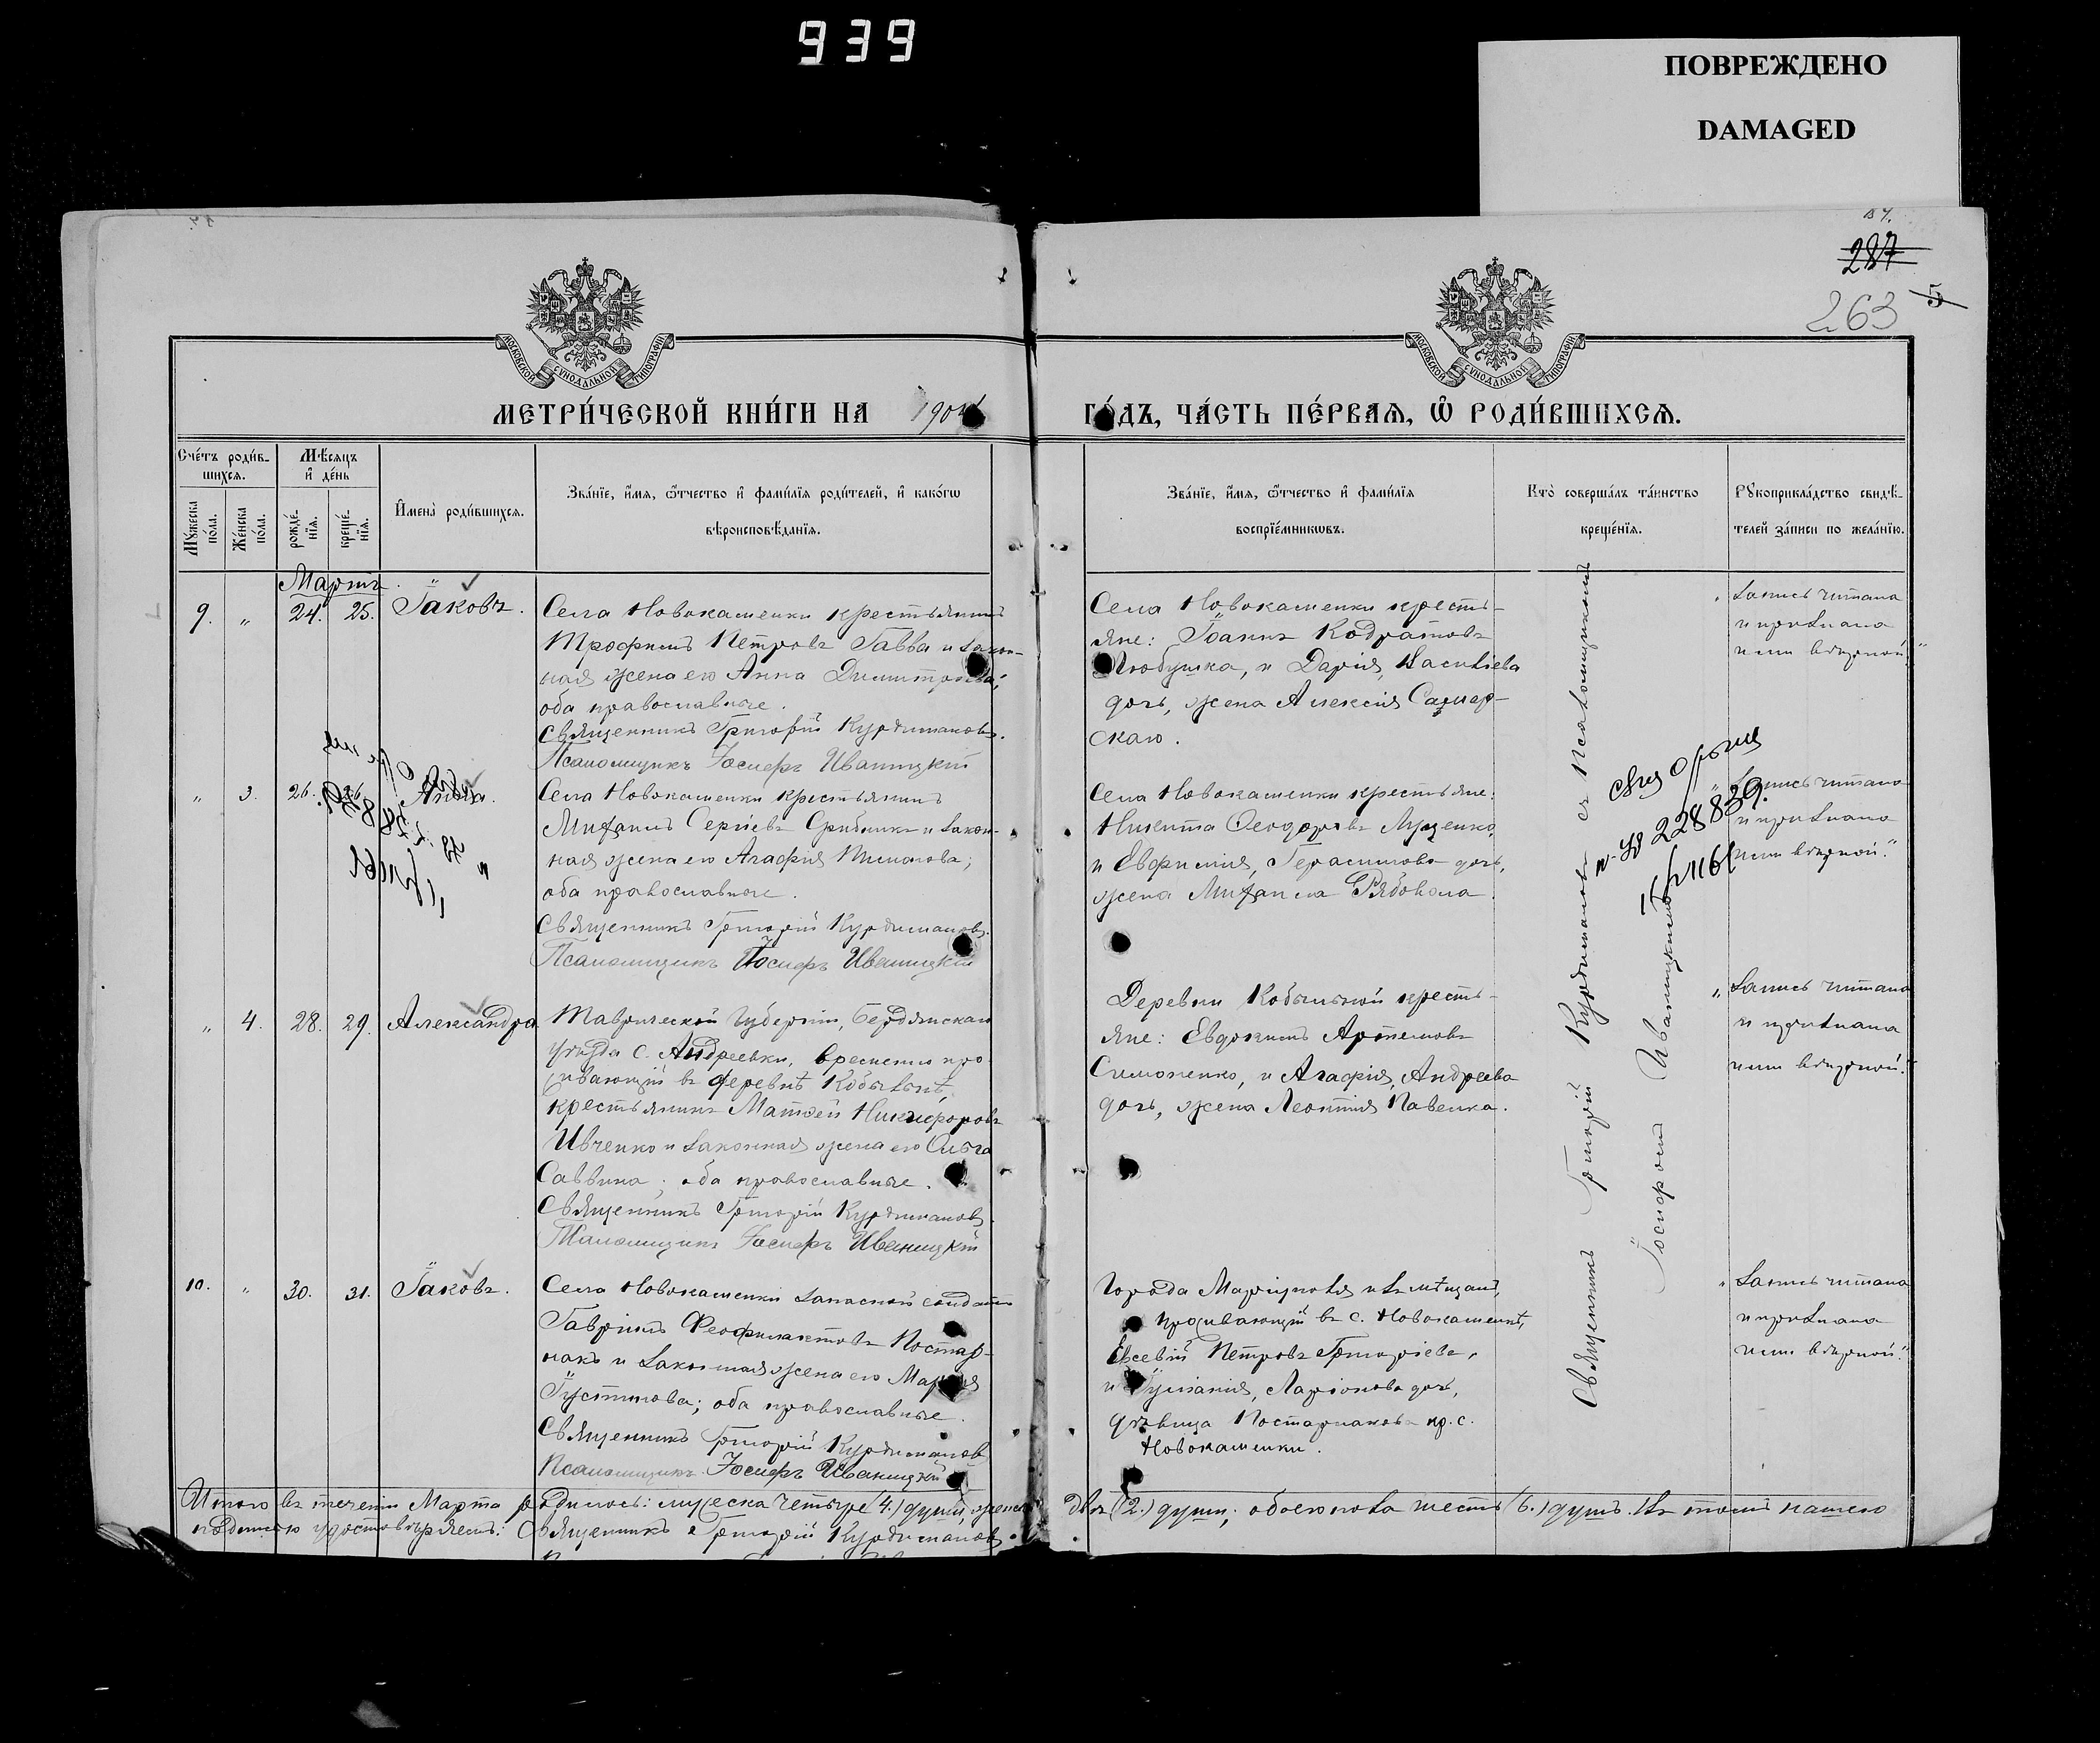 939
ПОВРЕЖДЕНО
DAMAGED
287
263
5
МОСКОВСКОЙ СѴНОДАЛЬНОЙ ТИПОГРАФІИ
МОСКОВСКОЙ СѴНОДАЛЬНОЙ ТИПОГРАФІИ
МЕТРИ́ЧЕСКОЙ КНИ́ГИ НА 190
ГО́ДЪ, ЧА́СТЬ ПЕ́РВАЯ, Ѡ҆ РОДИ́ВШИХСЯ.
Сче́тъ роди́в-
шихся.
Мѣ́сяцъ
и҆ де́нь
Мꙋ́жеска
по́ла.
Же́нска
по́ла.
рожде́-
нїя.
креще́-
нїя.
И҆мена̀ роди́вшихся.
Зва́нїе, и҆́мя, ѻ҆́тчество и҆ фами́лїя роди́телей, и҆ како́гѡ
вѣроисповѣ́данїя.
Зва́нїе, и҆́мя, ѻ҆́тчество и҆ фами́лїя
воспрїе́мникѡвъ.
Кто̀ соверша́лъ та́инство
креще́нїя.
Рꙋкоприкла́дство свидѣ́-
телей за́писи по жела́нїю.
Мартъ.
9. " 24. 25. Іаковъ.
Села Новокаменки крестьянинъ
Трофимъ Петровъ Гавва и закон-
ная жена его Анна Димитріева;
оба православные.
Священникъ Григорій Курдимановъ.
Псаломщикъ Іосифъ Иваницкій
Села Новокаменки кресть-
яне: Іоаннъ Кодратовъ
Любушка, и Дарія, Васильева
дочь, жена Алексія Самар-
скаго.
"Запись читана
и признана
ими вѣрной."
" 3. 26. 26. Анна.
Села Новокаменки крестьянинъ
Михаилъ Сергіевъ Срибникъ и закон-
ная жена его Агафія Тимонова;
оба православные.
Священникъ Григорій Курдимановъ.
Псаломщикъ Іосифъ Иваницкій
Села Новокаменки крестьяне:
Никита Ѳеодоровъ Луценко,
и Евфимія, Герасимова дочь,
жена Михаила Рябовола.
"Запись читана
и признана
ими вѣрной."
228839
" 4. 28. 29. Александра
Таврической губерніи, Бердянскаго
уѣзда с. Андреевки, временно про-
живающій въ деревнѣ Кобызьнѣ,
крестьянинъ Матѳей Никифоровъ
Ивченко и законная жена его Ольга
Саввина; оба православные.
Священникъ Григорій Курдимановъ.
Псаломщикъ Іосифъ Иваницкій
Деревни Кобызьной кресть-
яне: Евдокимъ Артемовъ
Симоненко, и Агафія, Андреева
дочь, жена Леонтія Павенка.
"Запись читана
и признана
ими вѣрной."
10. " 30. 31. Іаковъ.
Села Новокаменки запасной солдатъ
Гавріилъ Феофилактовъ Постар-
накъ и законная жена его Марія
Іустинова; оба православные.
Священникъ Григорій Курдимановъ
Псаломщикъ Іосифъ Иваницкій
Города Маріуполя изъ мѣщанъ,
проживающій въ с. Новокаменкѣ,
Евсевій Петровъ Григоріевъ,
и Іуліанія, Ларіонова дочь,
дѣвица Постарнакова кр. с.
Новокаменки.
"Запись читана
и признана
ими вѣрной."
Священникъ Григорій Курдимановъ съ псаломщикомъ
Іосифомъ Иваницкимъ
Итого въ теченіи Марта родилось: мужеска четыре (4.) души, женска двѣ (2.) души; обоего пола шесть (6.) душъ. Въ томъ нашею
подписью удостовѣряемъ: Священникъ Григорій Курдимановъ.